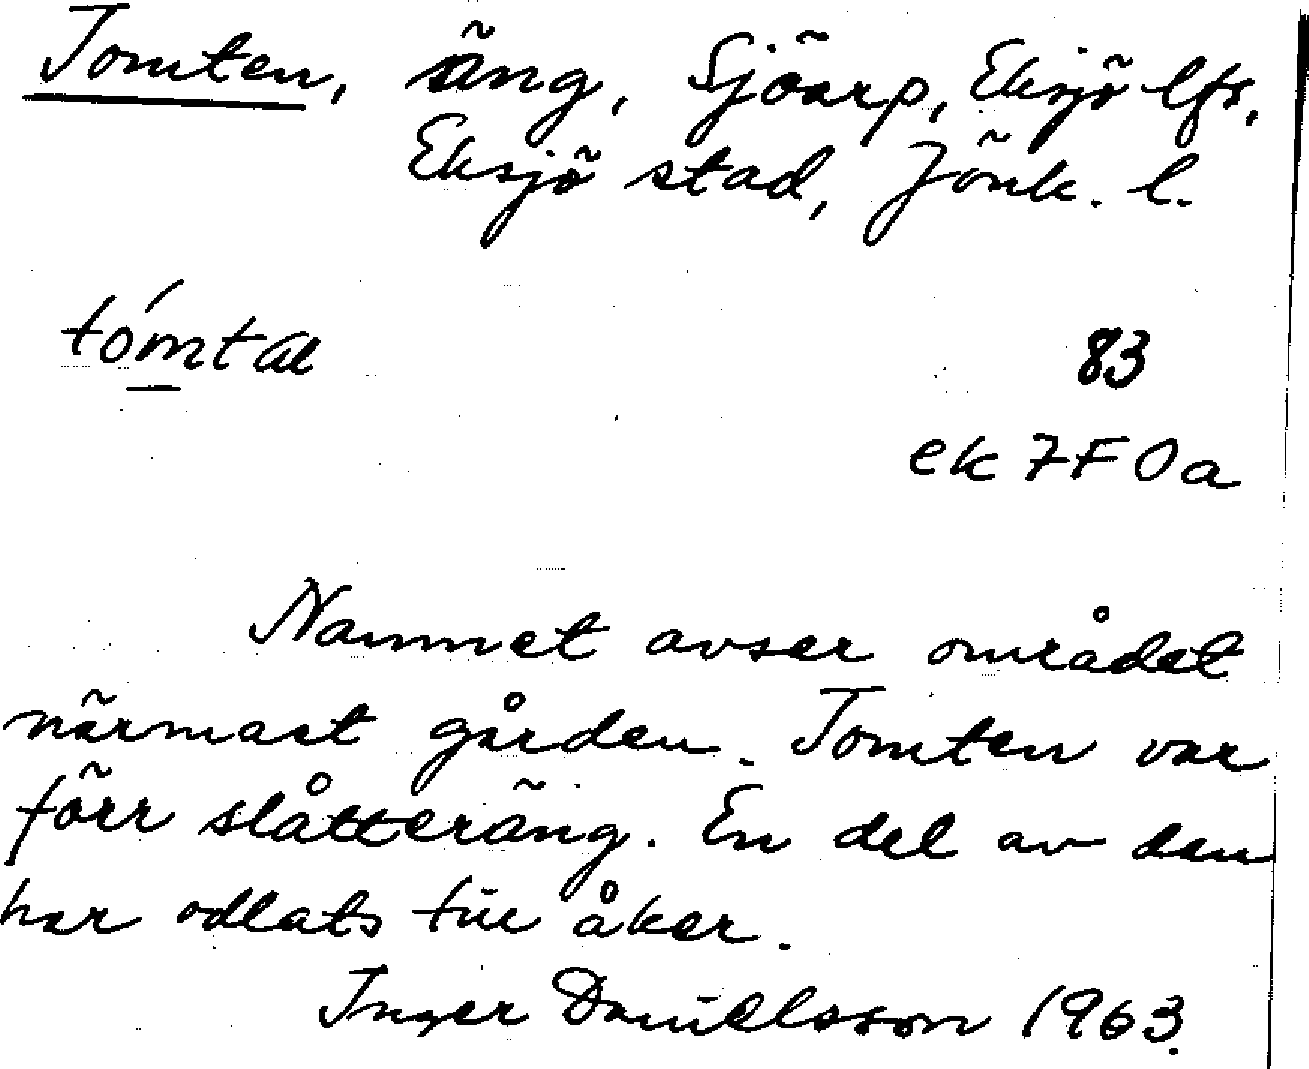 Tomten, äng, Sjöarp, Eksjö lfs,
Eksjö stad, Jönk. l.
83
ek 7F 0a
Namnet avser området
närmast gården. Tomten var
förr slåtteräng. En del av den
har odlats till åker.
Inger Daniélsson 1963.